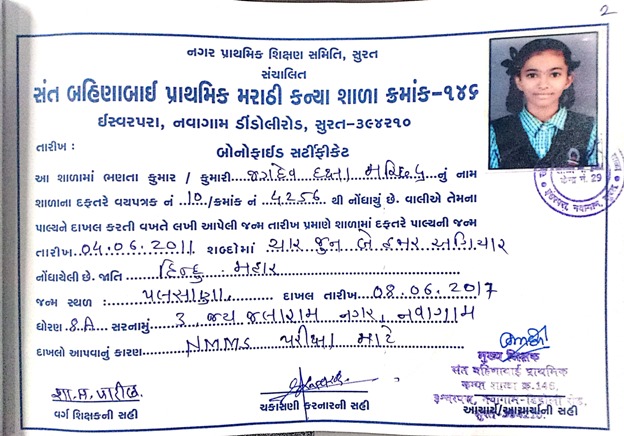 2
નગર પ્રાથમિક શિક્ષણ સમિતિ, સુરત
સંચાલિત
સંત બહિણાબાઈ પ્રાથમિક મરાઠી કન્યા શાળા ક્રમાંક-૧૪૬
ઈસ્વરપરા, નવાગામ ડીંડોલીરોડ, સુરત-૩૯૪૨૧૦
તારીખ :
બોનોફાઈડ સર્ટીફીકેટ
આ શાળામાં ભણતા કુમાર / કુમારી જગદેવ દક્ષા નું નામ
શાળાના દફતરે વયપત્રક નં 10 /ક્રમાંક નં 4256 થી નોંધાયું છે. વાલીએ તેમના
પાલ્યને દાખલ કરતી વખતે લખી આપેલી જન્મ તારીખ પ્રમાણે શાળામાં દફતરે પાલ્યની જન્મ
તારીખ 04.06.2011 શબ્દોમાં ચાર જુન બે હજાર અગિયાર
નોંધાયેલી છે. જાતિ હિન્દુ મહાર
જન્મ સ્થળ : પલસાણા, દાખલ તારીખ 08.06.2017
ધોરણ 8.A સરનામું 3, જય જલારામ નગર, નવાગામ
દાખલો આપવાનું કારણ NMMS પરીક્ષા માટે
મુખ્ય શિક્ષક
સંત બહિણાબાઈ પ્રાથમિક
કન્યા શાળા ક્ર.146,
વર્ગ શિક્ષકની સહી
ચકાસણી કરનારની સહી
આચાર્ય/આચાર્યાની સહી